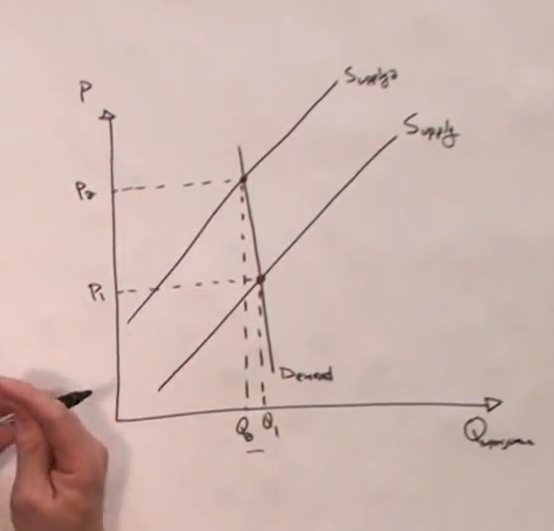 P
Supply2
Supply
P2
P1
Demand
Q2 Q1